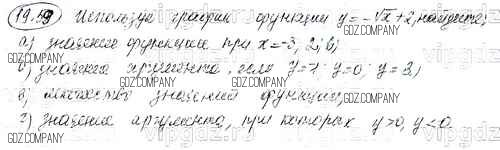 19.19 Используя график функции y=-√x+2, найдите:
а) значение функции, при x=-3; 2; 6;
б) значения аргумента, если y=7; y=0; y=3;
в) множество значений функции;
г) значения аргумента, при которых y>0, y<0.
GDZ.COMPANY GDZ.COMPANY GDZ.COMPANY
vipgdz.ru